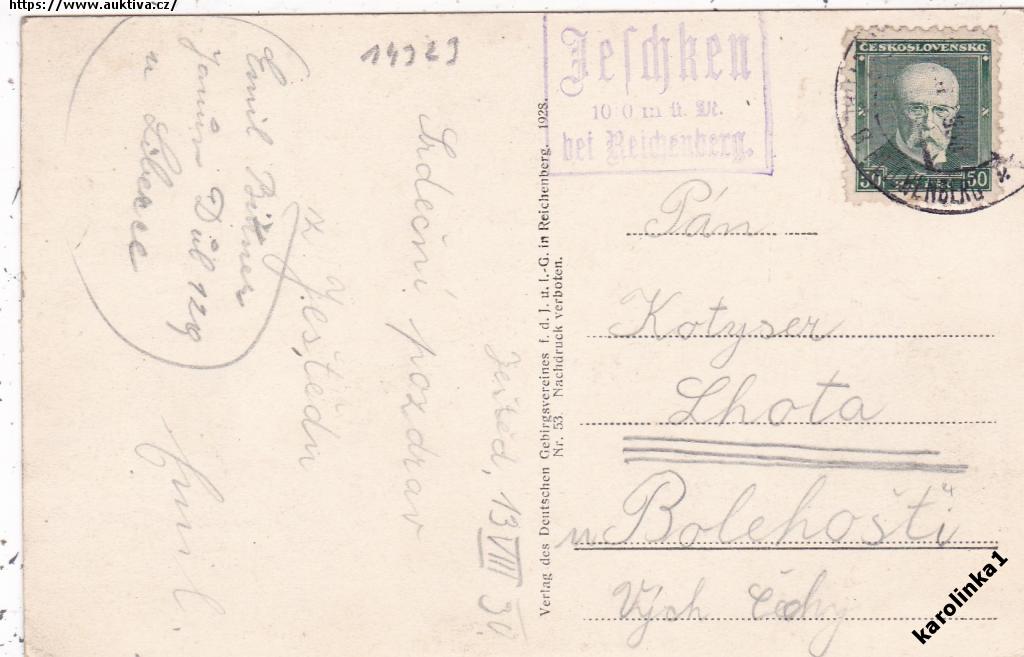 https://www.auktiva.cz/
14323
Emil Bitner
Janův Důl 128
u Liberce
Ještěd, 13 VIII 30
Srdečný pozdrav
z Ještědu
Emil
Verlag des Deutschen Gebirgsvereines f. d. J. u. I.-G. in Reichenberg. 1928.
Nr. 53. Nachdruck verboten.
Jeschken
1010 m ü. M.
bei Reichenberg.
ČESKOSLOVENSKO
50 50
Pán
Kotyser
Lhota
u Bolehošti
Vých Čechy
karolinka1